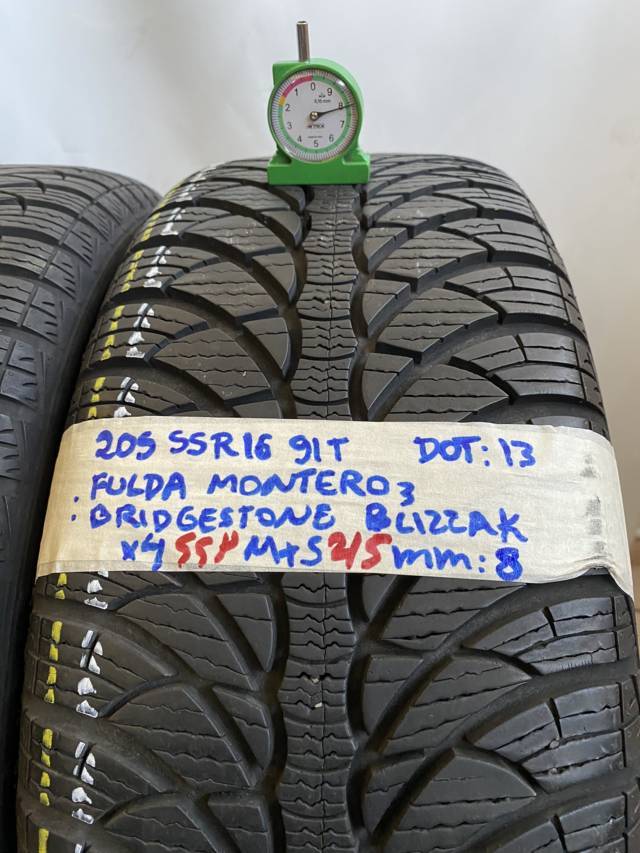 1 0 9
2 8
3 7
4 5 6
0,10 mm
205 55R16 91T DOT: 13
. FULDA MONTERO 3
: BRIDGESTONE BLIZZAK
x4 M+S mm: 8